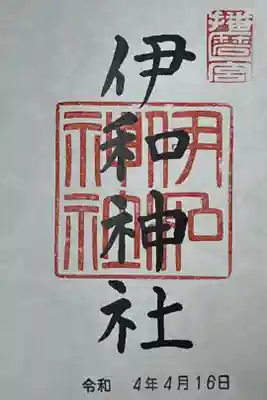 播磨一宮
伊和神社
伊和神社
令和 4年4月16日